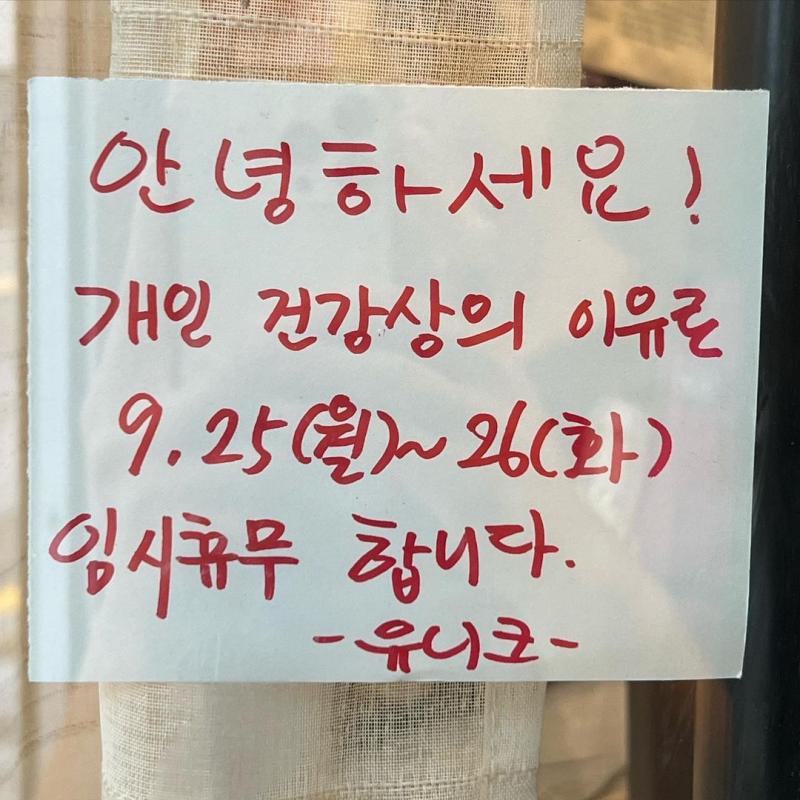 안녕하세요!
개인 건강상의 이유로
9.25(월)~26(화)
임시휴무 합니다.
-유니크-